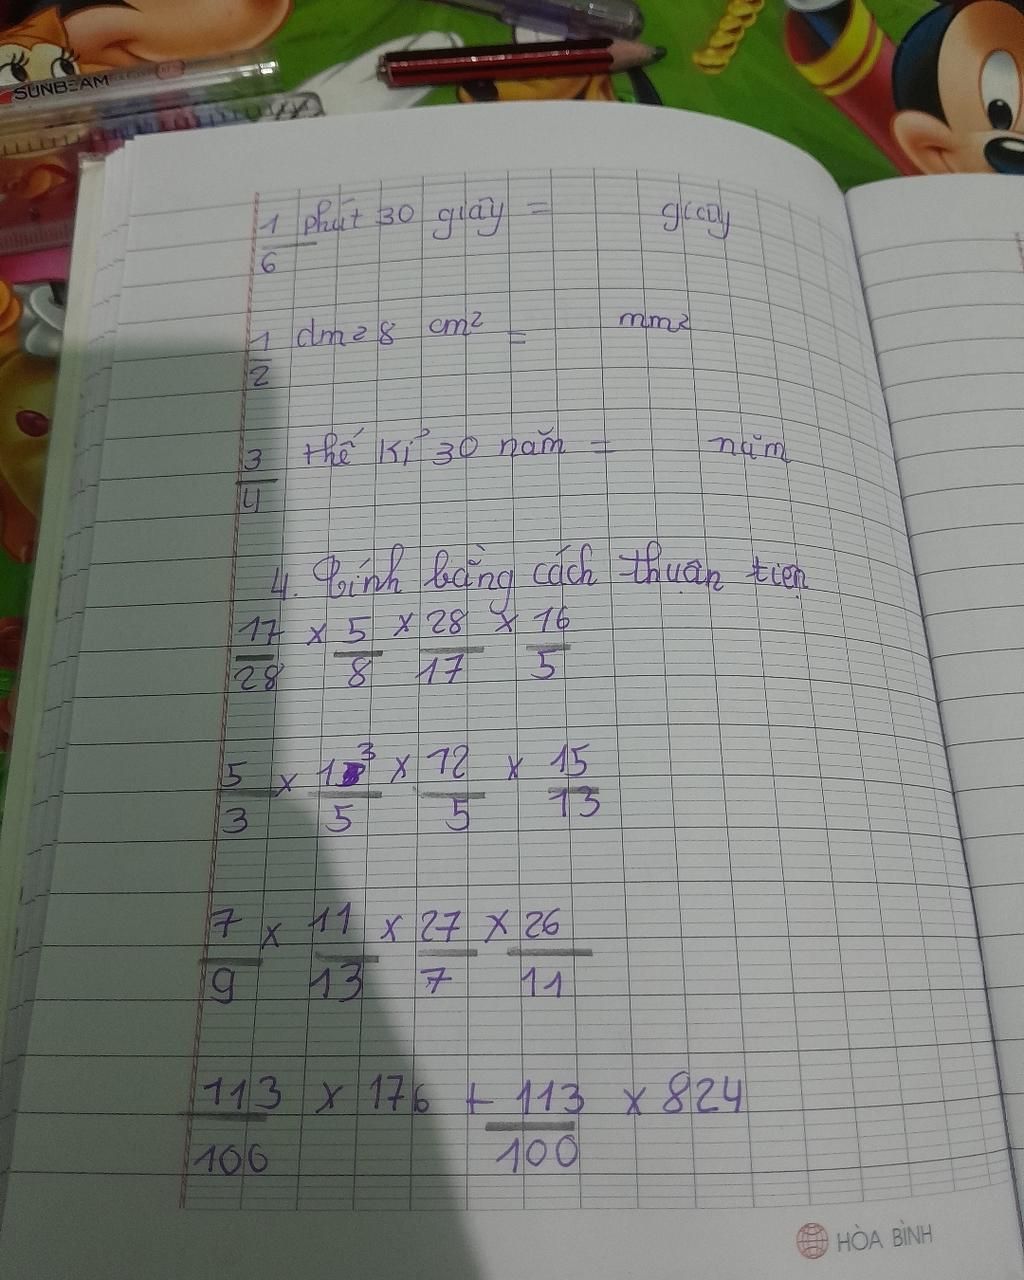 SUNBEAM
1/6 phút 30 giây = giây
1/2 dm2 8 cm² = mm2
3/4 thế kỉ 30 năm = năm
4. Tính bằng cách thuận tiện
17/28 × 5/8 × 28/17 × 16/5
5/3 × 13/5 × 12/5 × 15/13
7/9 × 11/13 × 27/7 × 26/11
113/100 × 176 + 113/100 × 824
HÒA BÌNH